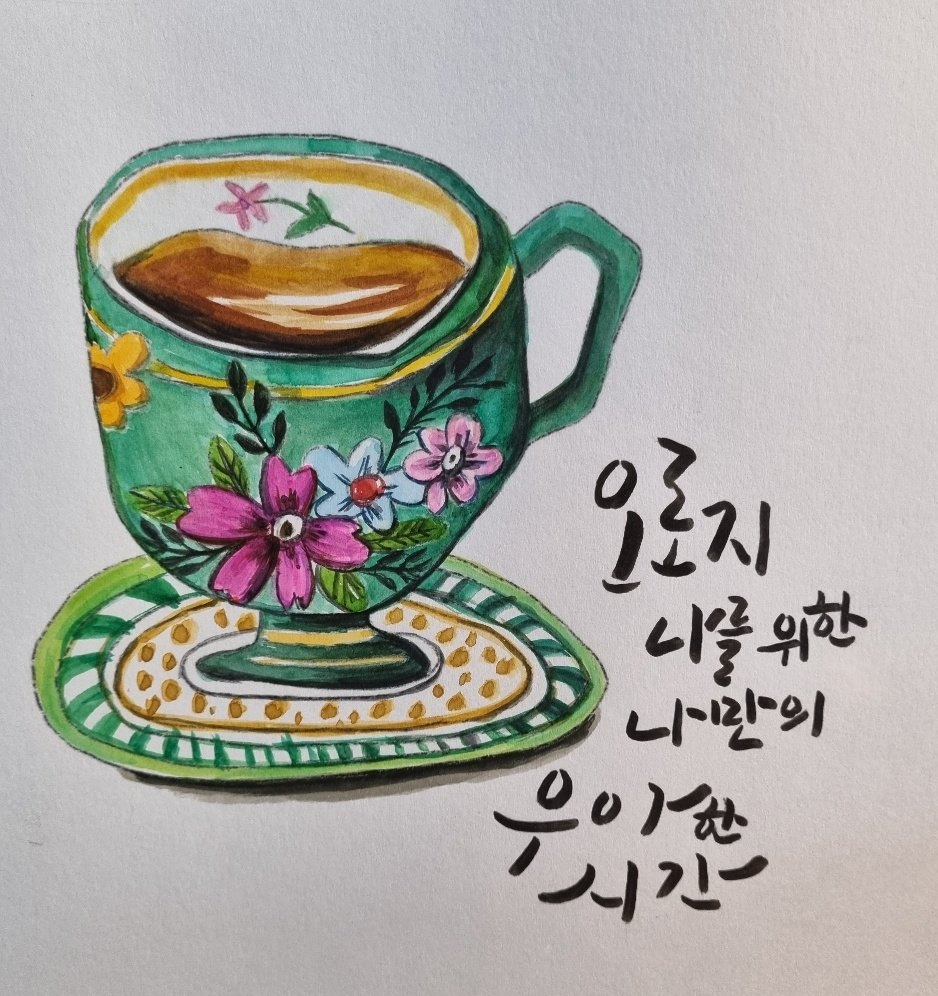 오로지
나를 위한
나만의
우아한
시간